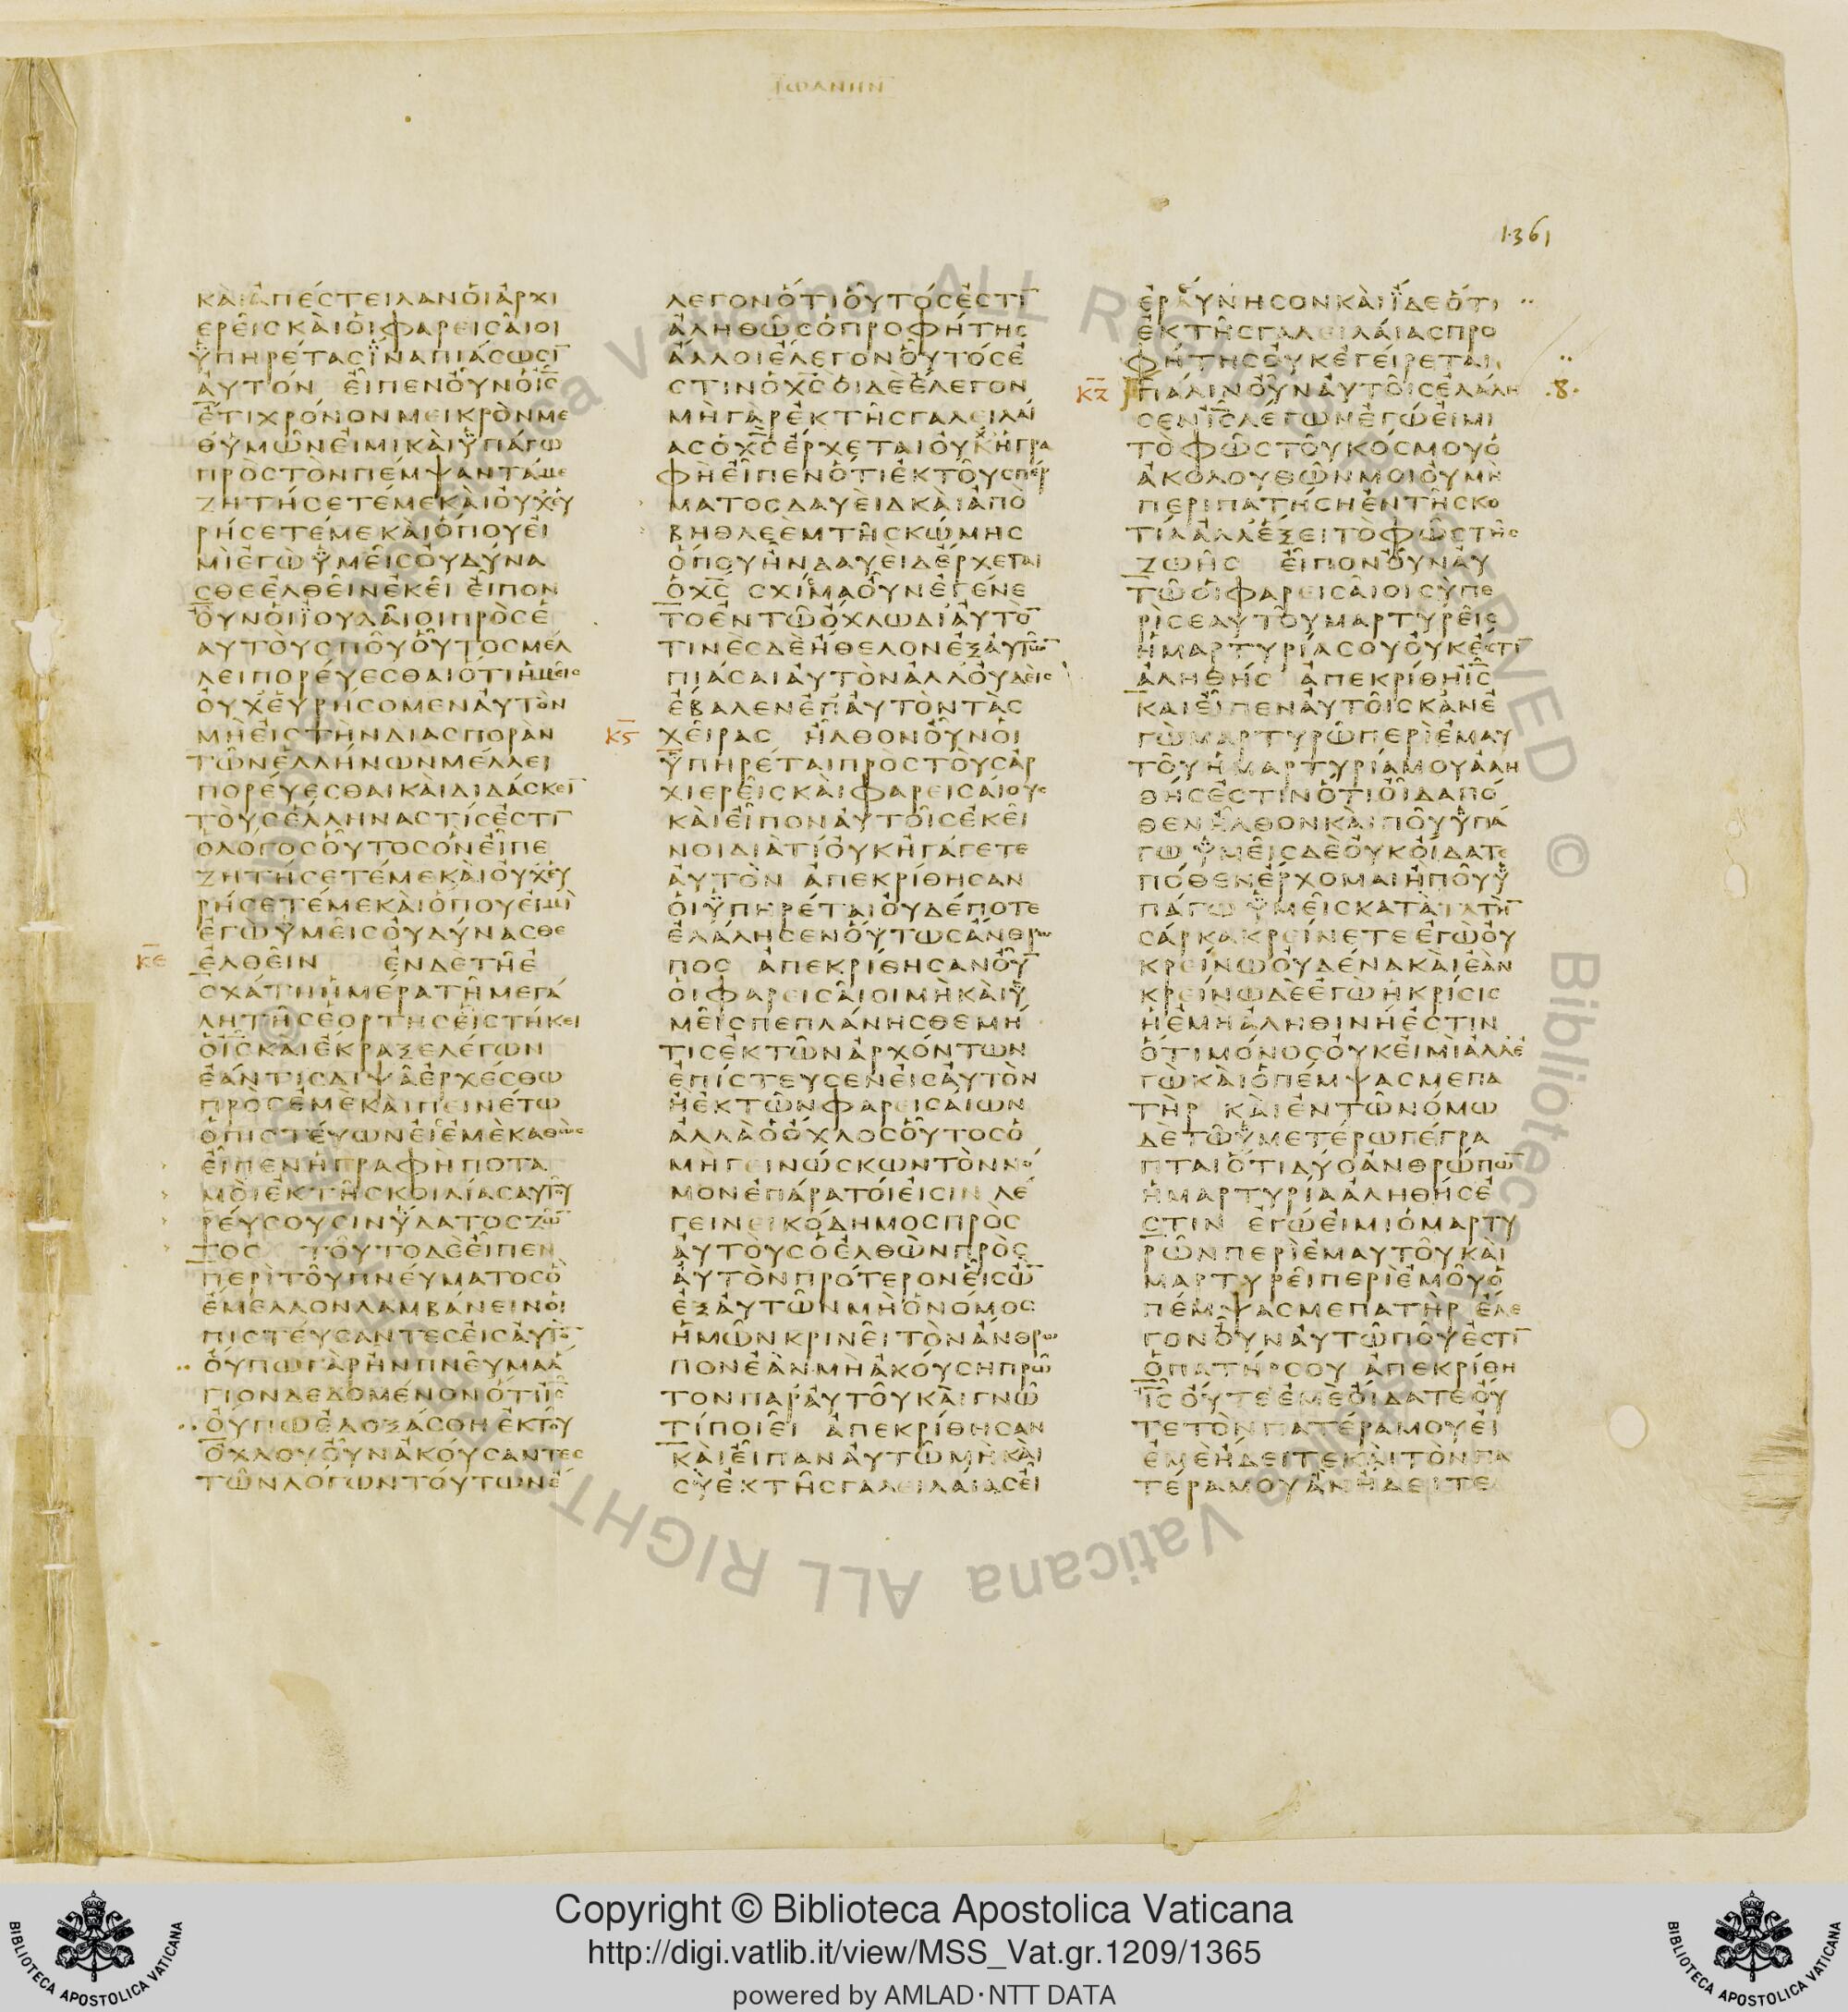 ΙΩΑΝΗΝ
1361
ΚΑΙ ΑΠΕΣΤΕΙΛΑΝ ΟΙ ΑΡΧΙ
ΕΡΕΙΣ ΚΑΙ ΟΙ ΦΑΡΕΙΣΑΙΟΙ
ΥΠΗΡΕΤΑΣ ΙΝΑ ΠΙΑΣΩΣΙ̅
ΑΥΤΟΝ ΕΙΠΕΝ ΟΥΝ Ο Ι̅Σ̅
ΕΤΙ ΧΡΟΝΟΝ ΜΕΙΚΡΟΝ ΜΕ
Θ ΥΜΩΝ ΕΙΜΙ ΚΑΙ ΥΠΑΓΩ
ΠΡΟΣ ΤΟΝ ΠΕΜΨΑΝΤΑ ΜΕ
ΖΗΤΗΣΕΤΕ ΜΕ ΚΑΙ ΟΥΧ ΕΥ
ΡΗΣΕΤΕ ΜΕ ΚΑΙ ΟΠΟΥ ΕΙ
ΜΙ ΕΓΩ ΥΜΕΙΣ ΟΥ ΔΥΝΑ
ΣΘΕ ΕΛΘΕΙΝ ΕΚΕΙ ΕΙΠΟΝ
ΟΥΝ ΟΙ ΙΟΥΔΑΙΟΙ ΠΡΟΣ Ε
ΑΥΤΟΥΣ ΠΟΥ ΟΥΤΟΣ ΜΕΛ
ΛΕΙ ΠΟΡΕΥΕΣΘΑΙ ΟΤΙ ΗΜΕΙΣ
ΟΥΧ ΕΥΡΗΣΟΜΕΝ ΑΥΤΟΝ
ΜΗ ΕΙΣ ΤΗΝ ΔΙΑΣΠΟΡΑΝ
ΤΩΝ ΕΛΛΗΝΩΝ ΜΕΛΛΕΙ
ΠΟΡΕΥΕΣΘΑΙ ΚΑΙ ΔΙΔΑΣΚΕΙ̅
ΤΟΥΣ ΕΛΛΗΝΑΣ ΤΙΣ ΕΣΤΙ̅
Ο ΛΟΓΟΣ ΟΥΤΟΣ ΟΝ ΕΙΠΕ
ΖΗΤΗΣΕΤΕ ΜΕ ΚΑΙ ΟΥΧ ΕΥ
ΡΗΣΕΤΕ ΜΕ ΚΑΙ ΟΠΟΥ ΕΙΜΙ
ΕΓΩ ΥΜΕΙΣ ΟΥ ΔΥΝΑΣΘΕ
Κ̅Ε ΕΛΘΕΙΝ ΕΝ ΔΕ ΤΗ Ε
ΣΧΑΤΗ ΗΜΕΡΑ ΤΗ ΜΕΓΑ
ΛΗ ΤΗΣ ΕΟΡΤΗΣ ΕΙΣΤΗΚΕΙ
Ο Ι̅Σ̅ ΚΑΙ ΕΚΡΑΞΕ ΛΕΓΩΝ
ΕΑΝ ΤΙΣ ΔΙΨΑ ΕΡΧΕΣΘΩ
ΠΡΟΣ ΕΜΕ ΚΑΙ ΠΕΙΝΕΤΩ
Ο ΠΙΣΤΕΥΩΝ ΕΙΣ ΕΜΕ ΚΑΘΩΣ
ΕΙΠΕΝ Η ΓΡΑΦΗ ΠΟΤΑ
ΜΟΙ ΕΚ ΤΗΣ ΚΟΙΛΙΑΣ ΑΥΤΟΥ
ΡΕΥΣΟΥΣΙΝ ΥΔΑΤΟΣ ΖΩ̅
ΤΟΣ ΤΟΥΤΟ ΔΕ ΕΙΠΕΝ
ΠΕΡΙ ΤΟΥ ΠΝΕΥΜΑΤΟΣ Ο
ΕΜΕΛΛΟΝ ΛΑΜΒΑΝΕΙΝ ΟΙ
ΠΙΣΤΕΥΣΑΝΤΕΣ ΕΙΣ ΑΥΤΟ̅
ΟΥΠΩ ΓΑΡ ΗΝ ΠΝΕΥΜΑ Α
ΓΙΟΝ ΔΕΔΟΜΕΝΟΝ ΟΤΙ Ι̅Σ̅
ΟΥΠΩ ΕΔΟΞΑΣΘΗ ΕΚ ΤΟΥ
ΟΧΛΟΥ ΟΥΝ ΑΚΟΥΣΑΝΤΕΣ
ΤΩΝ ΛΟΓΩΝ ΤΟΥΤΩΝ Ε
ΛΕΓΟΝ ΟΤΙ ΟΥΤΟΣ ΕΣΤΙ̅
ΑΛΗΘΩΣ Ο ΠΡΟΦΗΤΗΣ
ΑΛΛΟΙ ΕΛΕΓΟΝ ΟΥΤΟΣ Ε
ΣΤΙΝ Ο Χ̅Σ̅ ΟΙ ΔΕ ΕΛΕΓΟΝ
ΜΗ ΓΑΡ ΕΚ ΤΗΣ ΓΑΛΕΙΛΑΙ
ΑΣ Ο Χ̅Σ̅ ΕΡΧΕΤΑΙ ΟΥΧ Η ΓΡΑ
ΦΗ ΕΙΠΕΝ ΟΤΙ ΕΚ ΤΟΥ ΣΠΕΡ
ΜΑΤΟΣ ΔΑΥΕΙΔ ΚΑΙ ΑΠΟ
ΒΗΘΛΕΕΜ ΤΗΣ ΚΩΜΗΣ
ΟΠΟΥ ΗΝ ΔΑΥΕΙΔ ΕΡΧΕΤΑΙ
Ο Χ̅Σ̅ ΣΧΙΣΜΑ ΟΥΝ ΕΓΕΝΕ
ΤΟ ΕΝ ΤΩ ΟΧΛΩ ΔΙ ΑΥΤΟ̅
ΤΙΝΕΣ ΔΕ ΗΘΕΛΟΝ ΕΞ ΑΥΤΩ̅
ΠΙΑΣΑΙ ΑΥΤΟΝ ΑΛΛ ΟΥΔΕΙΣ
ΕΒΑΛΕΝ ΕΠ ΑΥΤΟΝ ΤΑΣ
Κ̅Ϛ ΧΕΙΡΑΣ ΗΛΘΟΝ ΟΥΝ ΟΙ
ΥΠΗΡΕΤΑΙ ΠΡΟΣ ΤΟΥΣ ΑΡ
ΧΙΕΡΕΙΣ ΚΑΙ ΦΑΡΕΙΣΑΙΟΥΣ
ΚΑΙ ΕΙΠΟΝ ΑΥΤΟΙΣ ΕΚΕΙ
ΝΟΙ ΔΙΑ ΤΙ ΟΥΚ ΗΓΑΓΕΤΕ
ΑΥΤΟΝ ΑΠΕΚΡΙΘΗΣΑΝ
ΟΙ ΥΠΗΡΕΤΑΙ ΟΥΔΕΠΟΤΕ
ΕΛΑΛΗΣΕΝ ΟΥΤΩΣ ΑΝΘΡΩ
ΠΟΣ ΑΠΕΚΡΙΘΗΣΑΝ ΟΥ̅
ΟΙ ΦΑΡΕΙΣΑΙΟΙ ΜΗ ΚΑΙ Υ
ΜΕΙΣ ΠΕΠΛΑΝΗΣΘΕ ΜΗ
ΤΙΣ ΕΚ ΤΩΝ ΑΡΧΟΝΤΩΝ
ΕΠΙΣΤΕΥΣΕΝ ΕΙΣ ΑΥΤΟΝ
Η ΕΚ ΤΩΝ ΦΑΡΕΙΣΑΙΩΝ
ΑΛΛΑ Ο ΟΧΛΟΣ ΟΥΤΟΣ Ο
ΜΗ ΓΕΙΝΩΣΚΩΝ ΤΟΝ ΝΟ
ΜΟΝ ΕΠΑΡΑΤΟΙ ΕΙΣΙΝ ΛΕ
ΓΕΙ ΝΕΙΚΟΔΗΜΟΣ ΠΡΟΣ
ΑΥΤΟΥΣ Ο ΕΛΘΩΝ ΠΡΟΣ
ΑΥΤΟΝ ΠΡΟΤΕΡΟΝ ΕΙΣ Ω̅
ΕΞ ΑΥΤΩΝ ΜΗ Ο ΝΟΜΟΣ
ΗΜΩΝ ΚΡΙΝΕΙ ΤΟΝ ΑΝΘΡΩ
ΠΟΝ ΕΑΝ ΜΗ ΑΚΟΥΣΗ ΠΡΩ
ΤΟΝ ΠΑΡ ΑΥΤΟΥ ΚΑΙ ΓΝΩ
ΤΙ ΠΟΙΕΙ ΑΠΕΚΡΙΘΗΣΑΝ
ΚΑΙ ΕΙΠΑΝ ΑΥΤΩ ΜΗ ΚΑΙ
ΣΥ ΕΚ ΤΗΣ ΓΑΛΕΙΛΑΙΑΣ ΕΙ
ΕΡΑΥΝΗΣΟΝ ΚΑΙ ΙΔΕ ΟΤΙ
ΕΚ ΤΗΣ ΓΑΛΕΙΛΑΙΑΣ ΠΡΟ
ΦΗΤΗΣ ΟΥΚ ΕΓΕΙΡΕΤΑΙ
Κ̅Ζ ΠΑΛΙΝ ΟΥΝ ΑΥΤΟΙΣ ΕΛΑΛΗ .8.
ΣΕΝ Ι̅Σ̅ ΛΕΓΩΝ ΕΓΩ ΕΙΜΙ
ΤΟ ΦΩΣ ΤΟΥ ΚΟΣΜΟΥ Ο
ΑΚΟΛΟΥΘΩΝ ΜΟΙ ΟΥ ΜΗ
ΠΕΡΙΠΑΤΗΣΗ ΕΝ ΤΗ ΣΚΟ
ΤΙΑ ΑΛΛ ΕΞΕΙ ΤΟ ΦΩΣ ΤΗΣ
ΖΩΗΣ ΕΙΠΟΝ ΟΥΝ ΑΥ
ΤΩ ΟΙ ΦΑΡΕΙΣΑΙΟΙ ΣΥ ΠΕ
ΡΙ ΣΕΑΥΤΟΥ ΜΑΡΤΥΡΕΙΣ
Η ΜΑΡΤΥΡΙΑ ΣΟΥ ΟΥΚ ΕΣΤΙ̅
ΑΛΗΘΗΣ ΑΠΕΚΡΙΘΗ Ι̅Σ̅
ΚΑΙ ΕΙΠΕΝ ΑΥΤΟΙΣ ΚΑΝ Ε
ΓΩ ΜΑΡΤΥΡΩ ΠΕΡΙ ΕΜΑΥ
ΤΟΥ Η ΜΑΡΤΥΡΙΑ ΜΟΥ ΑΛΗ
ΘΗΣ ΕΣΤΙΝ ΟΤΙ ΟΙΔΑ ΠΟ
ΘΕΝ ΗΛΘΟΝ ΚΑΙ ΠΟΥ ΥΠΑ
ΓΩ ΥΜΕΙΣ ΔΕ ΟΥΚ ΟΙΔΑΤΕ
ΠΟΘΕΝ ΕΡΧΟΜΑΙ Η ΠΟΥ Υ
ΠΑΓΩ ΥΜΕΙΣ ΚΑΤΑ ΤΗ̅
ΣΑΡΚΑ ΚΡΕΙΝΕΤΕ ΕΓΩ ΟΥ
ΚΡΕΙΝΩ ΟΥΔΕΝΑ ΚΑΙ ΕΑΝ
ΚΡΕΙΝΩ ΔΕ ΕΓΩ Η ΚΡΙΣΙΣ
Η ΕΜΗ ΑΛΗΘΙΝΗ ΕΣΤΙΝ
ΟΤΙ ΜΟΝΟΣ ΟΥΚ ΕΙΜΙ ΑΛΛ Ε
ΓΩ ΚΑΙ Ο ΠΕΜΨΑΣ ΜΕ ΠΑ
ΤΗΡ ΚΑΙ ΕΝ ΤΩ ΝΟΜΩ
ΔΕ ΤΩ ΥΜΕΤΕΡΩ ΓΕΓΡΑ
ΠΤΑΙ ΟΤΙ ΔΥΟ ΑΝΘΡΩΠΩ̅
Η ΜΑΡΤΥΡΙΑ ΑΛΗΘΗΣ Ε
ΣΤΙΝ ΕΓΩ ΕΙΜΙ Ο ΜΑΡΤΥ
ΡΩΝ ΠΕΡΙ ΕΜΑΥΤΟΥ ΚΑΙ
ΜΑΡΤΥΡΕΙ ΠΕΡΙ ΕΜΟΥ Ο
ΠΕΜΨΑΣ ΜΕ ΠΑΤΗΡ ΕΛΕ
ΓΟΝ ΟΥΝ ΑΥΤΩ ΠΟΥ ΕΣΤΙ̅
Ο ΠΑΤΗΡ ΣΟΥ ΑΠΕΚΡΙΘΗ
Ι̅Σ̅ ΟΥΤΕ ΕΜΕ ΟΙΔΑΤΕ ΟΥ
ΤΕ ΤΟΝ ΠΑΤΕΡΑ ΜΟΥ ΕΙ
ΕΜΕ ΗΔΕΙΤΕ ΚΑΙ ΤΟΝ ΠΑ
ΤΕΡΑ ΜΟΥ ΑΝ ΗΔΕΙΤΕ
Biblioteca Vaticana ALL RIGHT RESERVED ©
Copyright © Biblioteca Apostolica Vaticana
http://digi.vatlib.it/view/MSS_Vat.gr.1209/1365
powered by AMLAD·NTT DATA
BIBLIOTECA APOSTOLICA VATICANA
BIBLIOTECA APOSTOLICA VATICANA